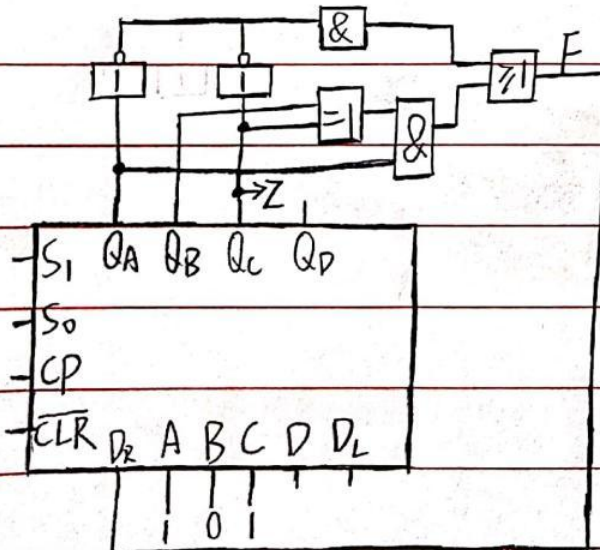 &
1 1 ≥1 F
=1
&
→Z
S₁ Q_A Q_B Q_C Q_D
S₀
CP
C̅L̅R̅ D_R A B C D D_L
1 0 1